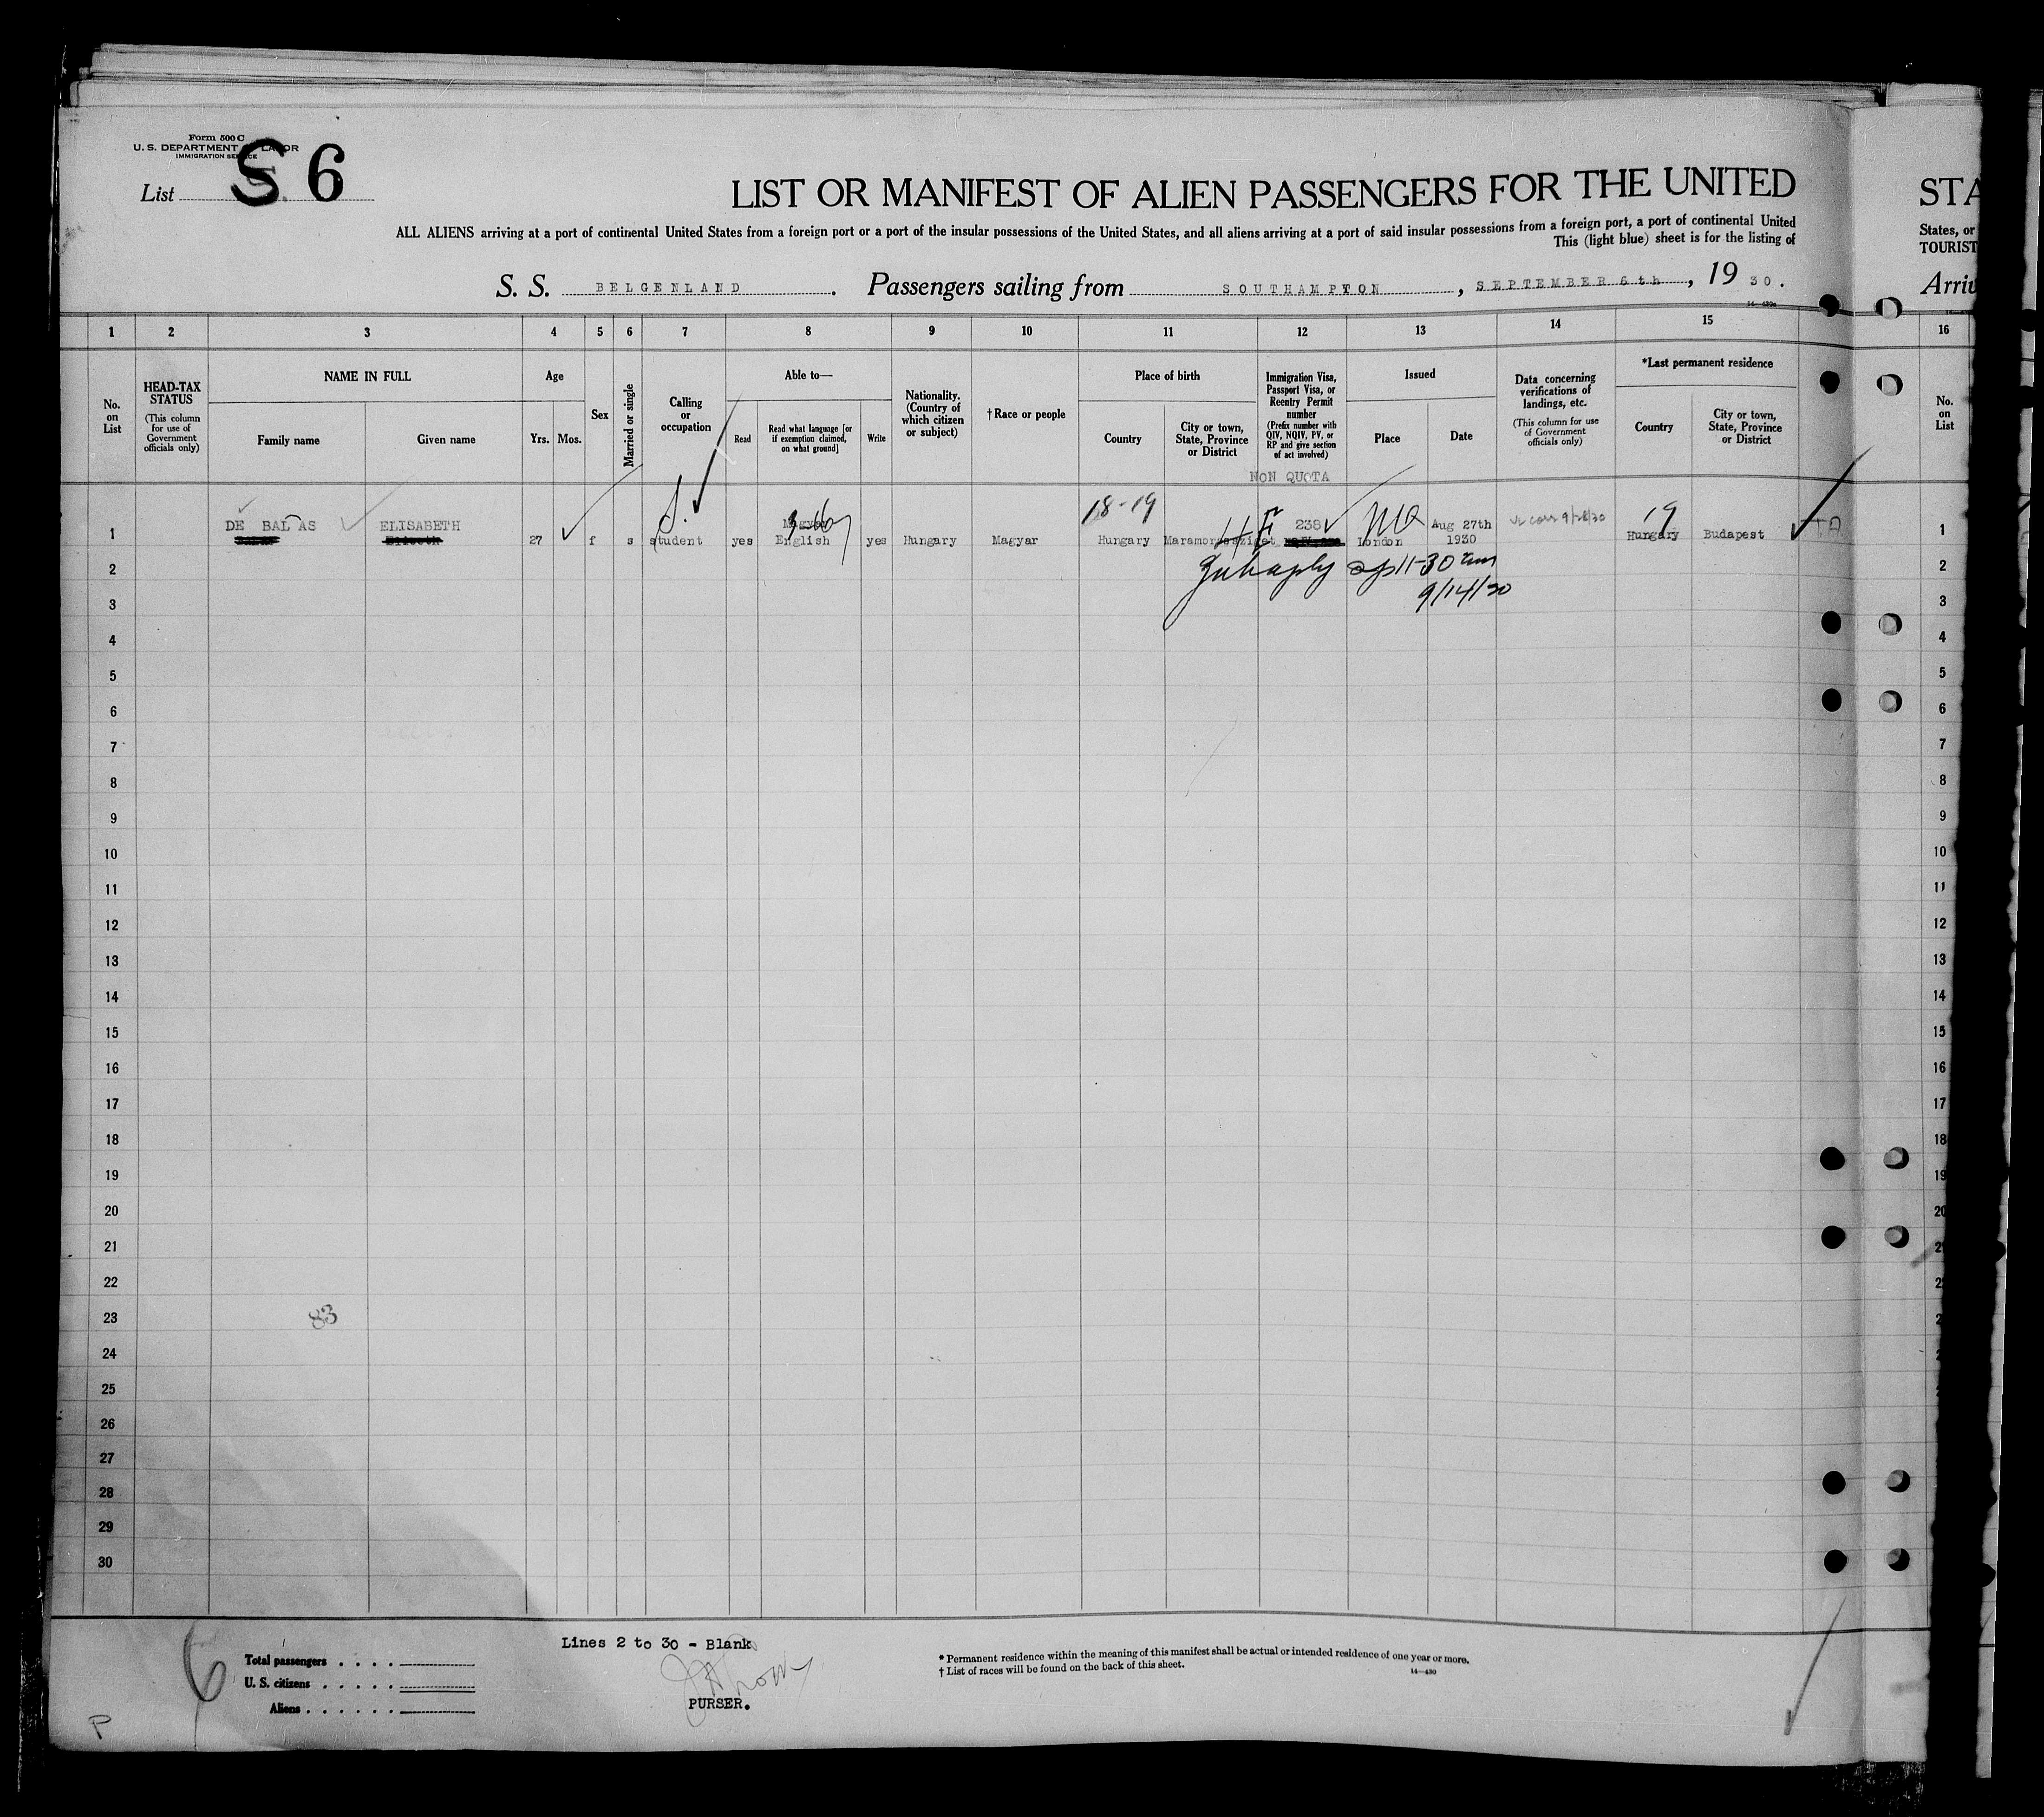 Form 500 C
U. S. DEPARTMENT OF LABOR
IMMIGRATION SERVICE
List S 6
LIST OR MANIFEST OF ALIEN PASSENGERS FOR THE UNITED
STA
ALL ALIENS arriving at a port of continental United States from a foreign port or a port of the insular possessions of the United States, and all aliens arriving at a port of said insular possessions from a foreign port, a port of continental United
States, or
This (light blue) sheet is for the listing of
TOURIST
S. S. BELGENLAND. Passengers sailing from SOUTHAMPTON, SEPTEMBER 6th, 19 30.
Arriv
14—430a
1 2 3 4 5 6 7 8 9 10 11 12 13 14 15 16
No. on List
HEAD-TAX STATUS
(This column for use of Government officials only)
NAME IN FULL
Family name
Given name
Age
Yrs. Mos.
Sex
Married or single
Calling or occupation
Able to—
Read
Read what language [or if exemption claimed, on what ground]
Write
Nationality. (Country of which citizen or subject)
† Race or people
Place of birth
Country
City or town, State, Province or District
Immigration Visa, Passport Visa, or Reentry Permit number
(Prefix number with QIV, NQIV, PV, or RP and give section of act involved)
NON QUOTA
Issued
Place
Date
Data concerning verifications of landings, etc.
(This column for use of Government officials only)
*Last permanent residence
Country
City or town, State, Province or District
No. on List
S. 18-19 19
DE BALAS ELISABETH Magyar 238 Aug 27th
1 27 f s student yes English yes Hungary Magyar Hungary London 1930 Hungary Budapest 1
2 11-30 am 2
3 9/14/30 3
4 4
5 5
6 6
7 7
8 8
9 9
10 10
11 11
12 12
13 13
14 14
15 15
16 16
17 17
18 18
19 19
20 20
21 2
22 2
23 83 2
24 2
25
26
27
28
29
30
Lines 2 to 30 - Blank
6
Total passengers . . . .
U. S. citizens . . . . .
Aliens . . . . . .
PURSER.
* Permanent residence within the meaning of this manifest shall be actual or intended residence of one year or more.
† List of races will be found on the back of this sheet.
14—430
P